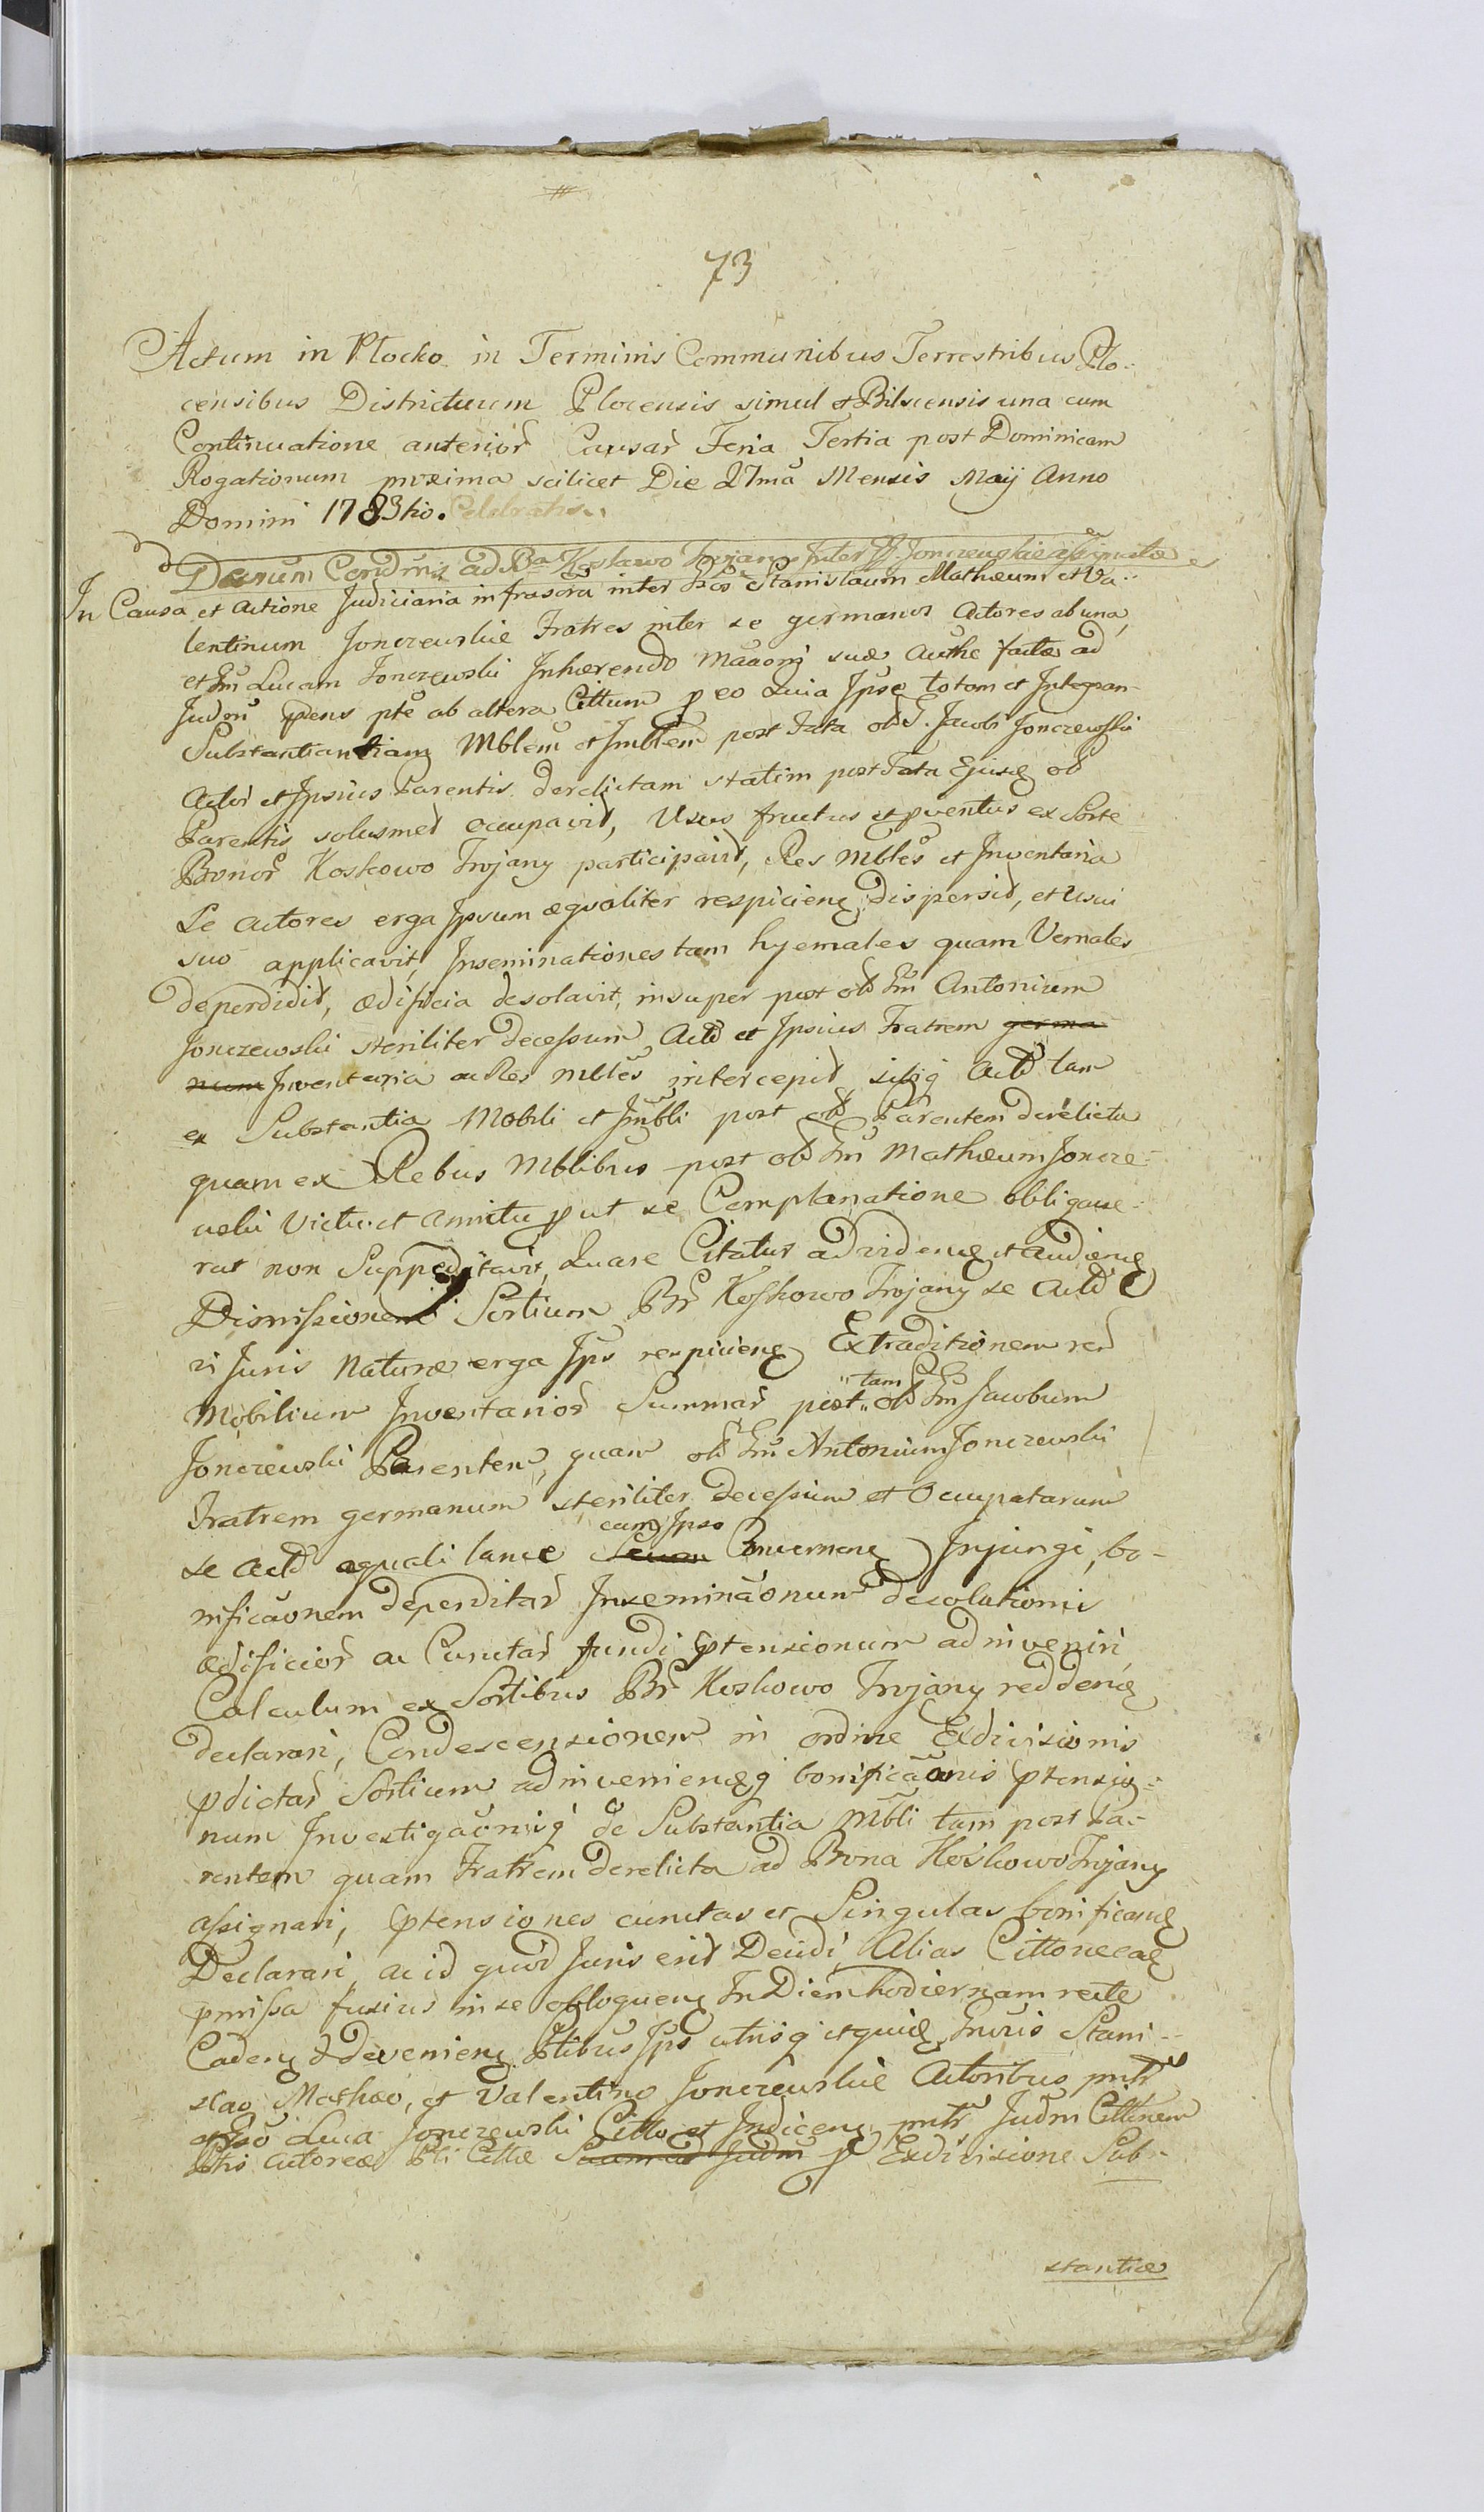 73
Actum in Plocko in Terminis Communibus Terrestribus Plo-
censibus Districtuum Plocensis simul et Bilscensis una cum
Continuatione anterior Causar Feria Tertia post Dominicam
Rogationum proxima scilicet Die 27ma Mensis Maij Anno
Domini 1783tio. Celebratis.
Decretum Condnis ad Ba Koskowo Trojany Inter GG. Jonczewskie assignatae
In Causa et Actione Judiciaria infrascra inter Gsos Stanislaum Mathæum et Va-
lentinum Jonczewskie Fratres inter se germanos Actores ab una,
et Gm Lucam Jonczewski Inhærendo suæ Authe factæ ad
Judm pte ab altera Cittum p eo Quia Ipse totam et Integran-
Substantiantiam Mblem et Imblem post Fata old G. Jacobi Jonczewski
Actor et Ipsius Parentis derelictam statim post Fata Ejusq old
Parentis solusmet occupavit, Usus fructus et pventus ex Sorte
Bonor Koskowo Trojany participavit, Res Mbles et Inventaria
Se Actores erga Ipsum æqualiter respicienq dispersit, et Usui
suo applicavit, Inseminationes tam hyemales quam Vernales
deperdidit, ædificia desolavit, insuper post old Gm Antonium
Jonczewski steriliter decessum Actor et Ipsius Fratrem germa-
num Inventaria ac Res mbles intercepit, sibiq Actor tam
ex Substantia Mobili et Imbli post old Parentem derelicta
quam ex Rebus Mblibus post old Gm Mathæum Joncze-
wski Victu et Amictu put se Complanatione obligave-
rat non Suppeditavit, Quare Citatur ad videnq et audienq
Dimissionem Sortium Br Koskowo Trojany se Actor
vi Juris Naturæ erga Ips respicienq Extraditionem rer
Mobilium Inventarior Summar post "tam" old Gm Jacobum
Jonczewski Parentem, quam old Gm Antonium Jonczewski
Fratrem germanum steriliter decessum et Occupatarum
se Actor æquali lance cum Ipso Concernenq Injungi, bo-
nificaonem deperditar Inseminaonum desolationis
ædificior ac Cunctar fundi ptensionum adinveniri,
Calculum ex Sortibus Br Koskowo Trojany reddenq
declarari, Condescensionem in ordine Exdivisionis
pdictar Sortium adinvenienqq bonificaonis ptensio-
num Investigaonisq de Substantia Mbli tam post Pa-
rentem quam Fratrem derelicta ad Bona Koskowo Trojany
assignari, ptensiones cunctas et Singulas bonificanq
Declarari, ac id quod Juris erit Decidi, Alias Cittone eaq
pmissa fusius in se obloquenq In Diem hodiernam recte
Caden & devenien Ptibus Ips utrisq Stani-
slao Mathæo, et Valentino Jonczewskie Actoribus pntr
et Gso Luca Jonczewski Citto et Indicenq pntr Judm Cittnem
Ptis Actoreæ Pti Cittæ p Exdivisione Sub-
stantiæ